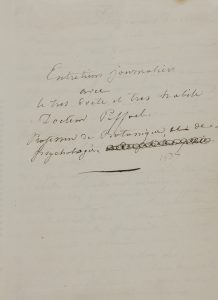 Entretiens journaliers
avec
le très docte et très habile
Docteur Piffoël
Professeur de Botanique et de
Psychologie